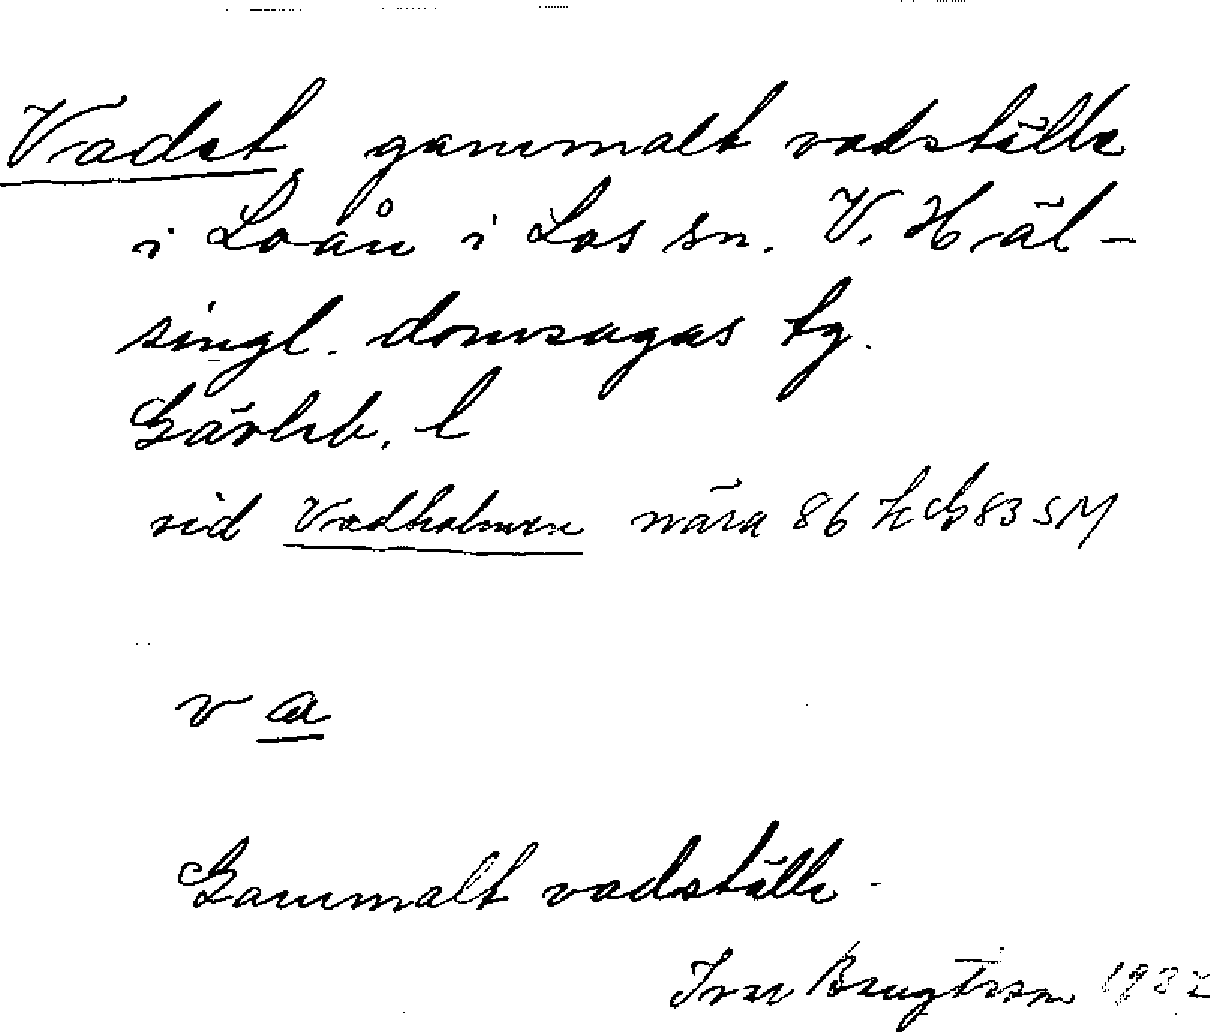 Vadet, gammalt vadställe
i Loån i Los sn. V. Häl-
singl. domsagas tg.
Gävleb. l
vid Vadholmen nära 86 83 SM
va
Gammalt vadställe.
Ivar Bengtsson 1932